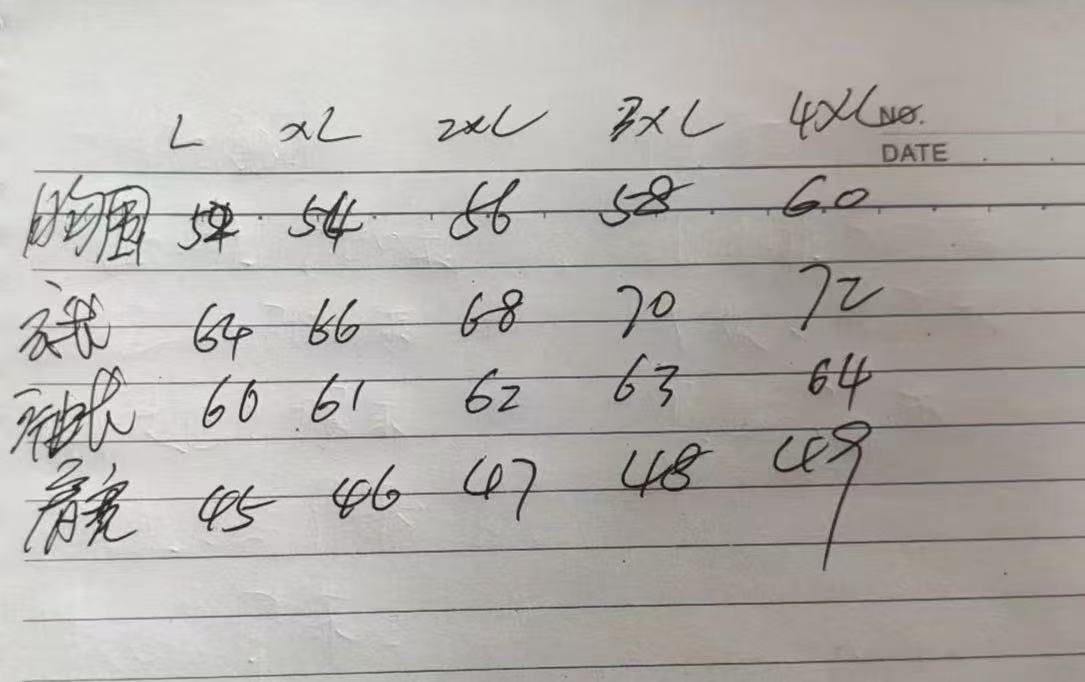 L XL 2XL 3XL 4XL NO.
DATE
胸围 52 54 56 58 60
衣长 64 66 68 70 72
袖长 60 61 62 63 64
肩宽 45 46 47 48 49